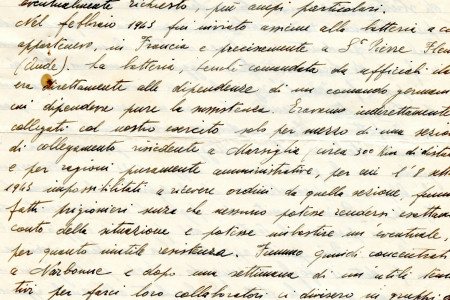 eventualmente richiesto, più ampi particolari.
Nel febbraio 1943 fui inviato assieme alla batteria a cui
appartenevo, in Francia e precisamente a S. Pierre Fleu
(Aude). La batteria, benché comandata da ufficiali ita
era direttamente alle dipendenze di un comando german
cui dipendeva pure la sussistenza. Eravamo indirettamente
collegati col nostro esercito solo per mezzo di una sezion
di collegamento residente a Marsiglia, circa 300 Km di distan
e per ragioni puramente amministrative, per cui l'8 sett
1943 impossibilitati a ricevere ordini da quella sezione, fummo
fatti prigionieri senza che nessuno potesse rendersi esattam
conto della situazione e potesse imbastire un eventuale,
per quanto inutile resistenza. Fummo quindi concentrati
a Narbonne e dopo una settimana di inutili tenta
tivi per farci loro collaboratori ci divisero in gruppi d